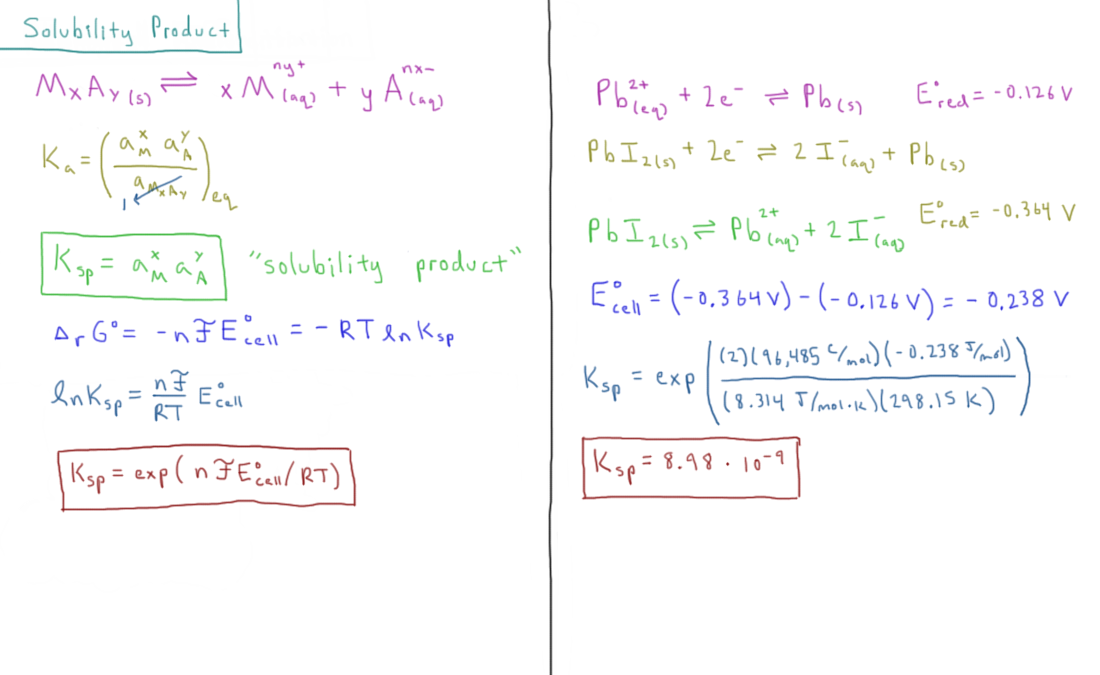 Solubility Product
MₓAᵧ (s) ⇌ x M^{ny+} (aq) + y A^{nx-} (aq)
Kₐ = (a_M^x a_A^y / a_{MₓAᵧ})_eq
1
K_sp = a_M^x a_A^y "solubility product"
Δ_r G° = -nℱE°_cell = -RT ln K_sp
ln K_sp = nℱ/RT E°_cell
K_sp = exp(nℱE°_cell/RT)
Pb^{2+} (eq) + 2e⁻ ⇌ Pb (s) E°_red = -0.126 V
PbI₂ (s) + 2e⁻ ⇌ 2 I⁻ (aq) + Pb (s)
E°_red = -0.364 V
PbI₂ (s) ⇌ Pb^{2+} (aq) + 2 I⁻ (aq)
E°_cell = (-0.364 V) - (-0.126 V) = -0.238 V
K_sp = exp((2)(96,485 C/mol)(-0.238 J/mol) / (8.314 J/mol·K)(298.15 K))
K_sp = 8.98 · 10⁻⁹